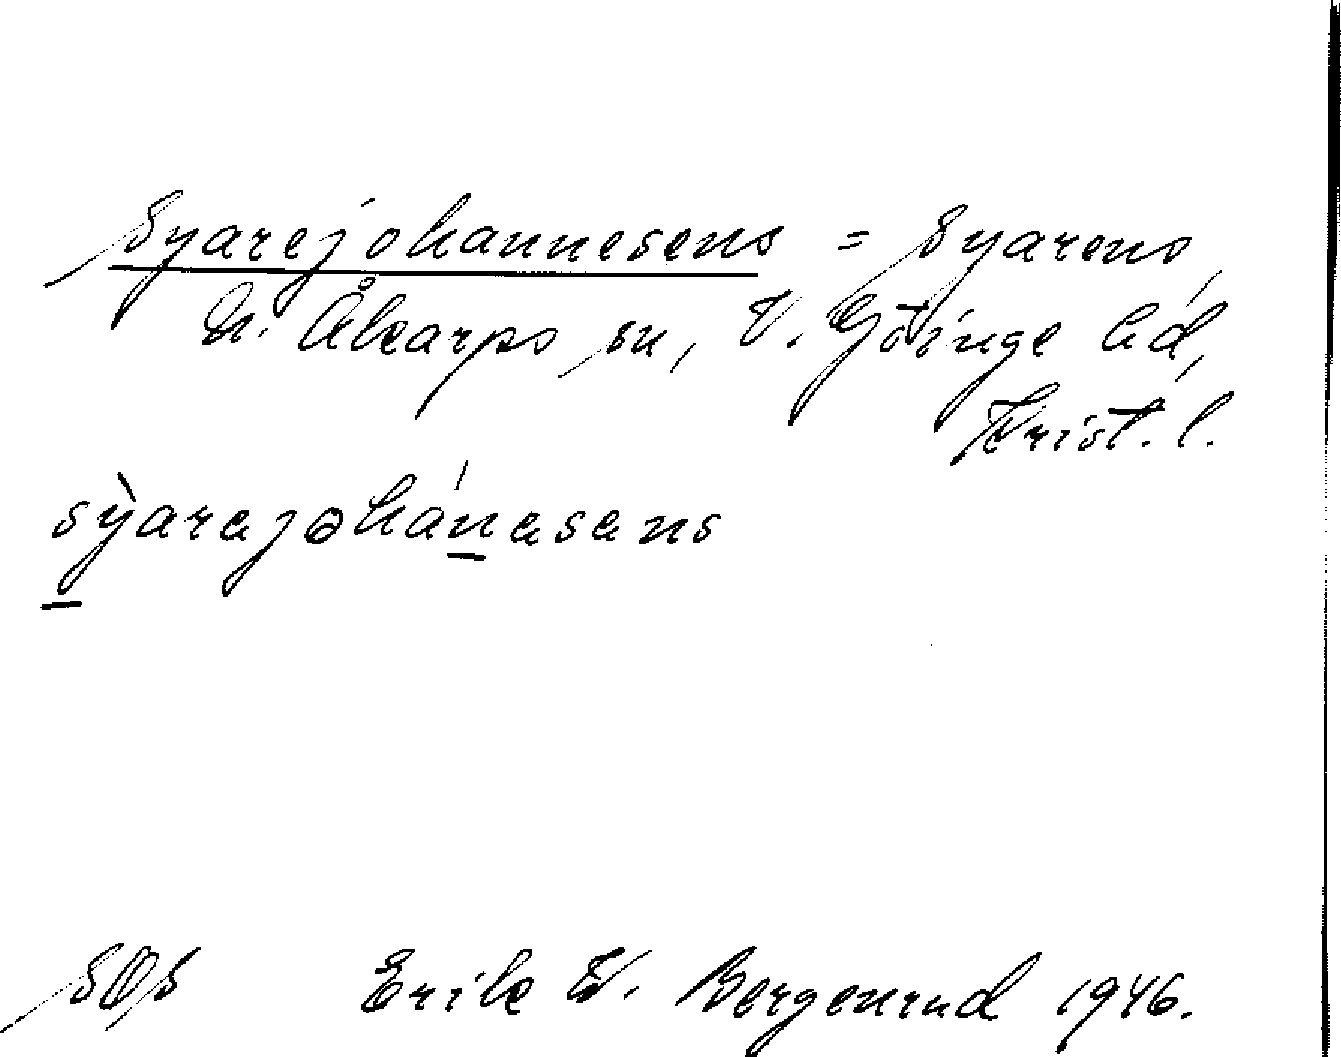 Syarejohannesens = Syarens,
N. Åkarps sn, V. Göinge hd,
Krist. l.
sỳarajohánasans
SOS Erik W. Bergenrud 1946.